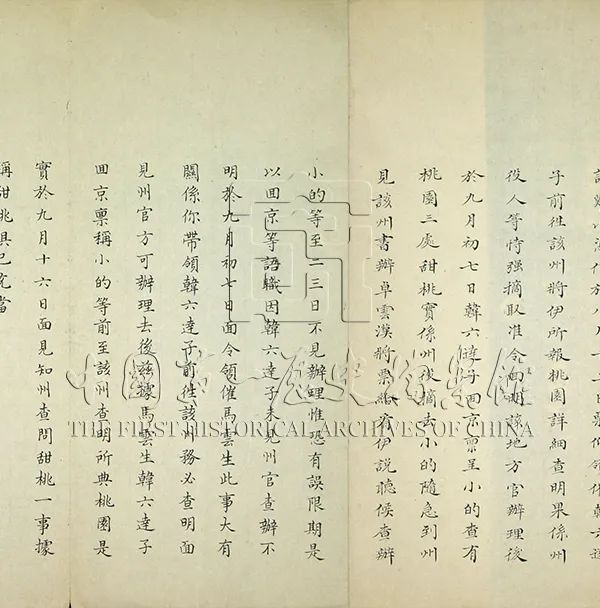 子前徃該州將伊所報桃園詳細查明果係州
役人等恃强摘取准令面晤該地方官辦理後
於九月初七日韓六達子囬京禀呈小的查有
桃園三處甜桃實係州役摘去小的隨急到州
見該州書辦卓雲漢將票給看伊説聽候查辦
小的等至二三日不見辦理惟恐有誤限期是
以囬京等語職因韓六達子未見州官查辦不
明於九月初七日面令領催馬雲生此事大有
關係你帶領韓六達子前徃該州務必查明面
見州官方可辦理去後兹據馬雲生韓六達子
囬京禀稱小的等前至該州查明所典桃園是
實於九月十六日面見知州查問甜桃一事據
稱甜桃俱已充當
中國第一歷史檔案館
THE FIRST HISTORICAL ARCHIVES OF CHINA